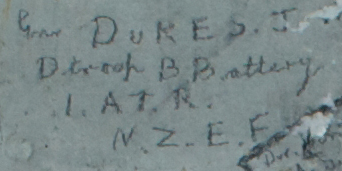 Gnr DUKES. J
D troop B Battery
1. A T. R.
N. Z. E. F